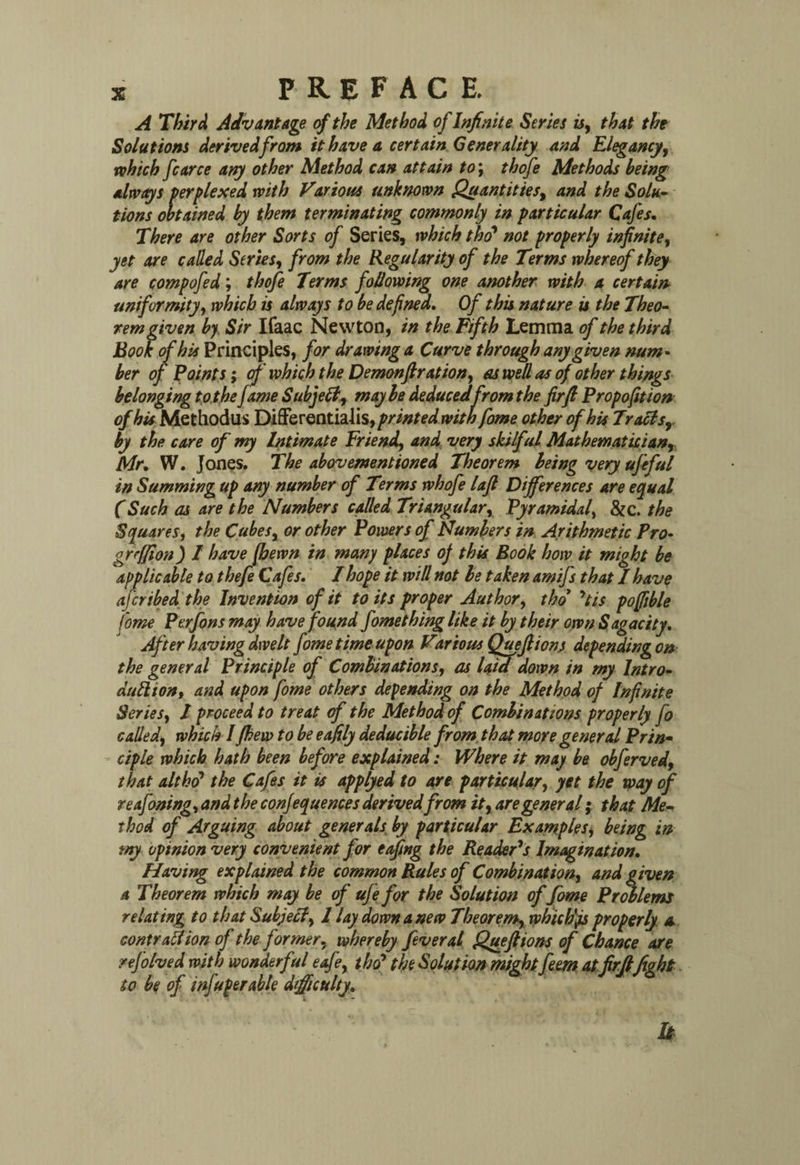 x PREFACE.
A Third Advantage of the Method of Infinite Series is, that the
Solutions derived from it have a certain Generality and Elegancy,
which ſcarce any other Method can attain to; thoſe Methods being
always perplexed with Various unknown Quantities, and the Solu-
tions obtained by them terminating commonly in particular Caſes.
There are other Sorts of Series, which tho' not properly infinite,
yet are called Series, from the Regularity of the Terms whereof they
are compoſed; thoſe Terms following one another with a certain
uniformity, which is always to be defined. Of this nature is the Theo-
rem given by Sir Iſaac Newton, in the Fifth Lemma of the third
Book of his Principles, for drawing a Curve through any given num-
ber of Points; of which the Demonſtration, as well as of other things
belonging to the ſame Subject, may be deduced from the firſt Propoſition
of his Methodus Differentialis, printed with ſome other of his Tracts,
by the care of my Intimate Friend, and very skilful Mathematician,
Mr. W. Jones. The abovementioned Theorem being very uſeful
in Summing up any number of Terms whoſe laſt Differences are equal
(Such as are the Numbers called Triangular, Pyramidal, &c. the
Squares, the Cubes, or other Powers of Numbers in Arithmetic Pro-
greſſion) I have ſhewn in many places of this Book how it might be
applicable to theſe Caſes. I hope it will not be taken amiſs that I have
aſcribed the Invention of it to its proper Author, tho' 'tis poſſible
ſome Perſons may have found ſomething like it by their own Sagacity.
After having dwelt ſome time upon Various Queſtions depending on
the general Principle of Combinations, as laid down in my Intro-
duction, and upon ſome others depending on the Method of Infinite
Series, I proceed to treat of the Method of Combinations properly ſo
called, which I ſhew to be eaſily deducible from that more general Prin-
ciple which hath been before explained: Where it may be obſerved,
that altho' the Caſes it is applyed to are particular, yet the way of
reaſoning, and the conſequences derived from it, are general; that Me-
thod of Arguing about generals by particular Examples, being in
my opinion very convenient for eaſing the Reader's Imagination.
Having explained the common Rules of Combination, and given
a Theorem which may be of uſe for the Solution of ſome Problems
relating to that Subject, I lay down a new Theorem, which is properly a
contraction of the former, whereby ſeveral Queſtions of Chance are
reſolved with wonderful eaſe, tho' the Solution might ſeem at firſt ſight
to be of inſuperable difficulty.
It